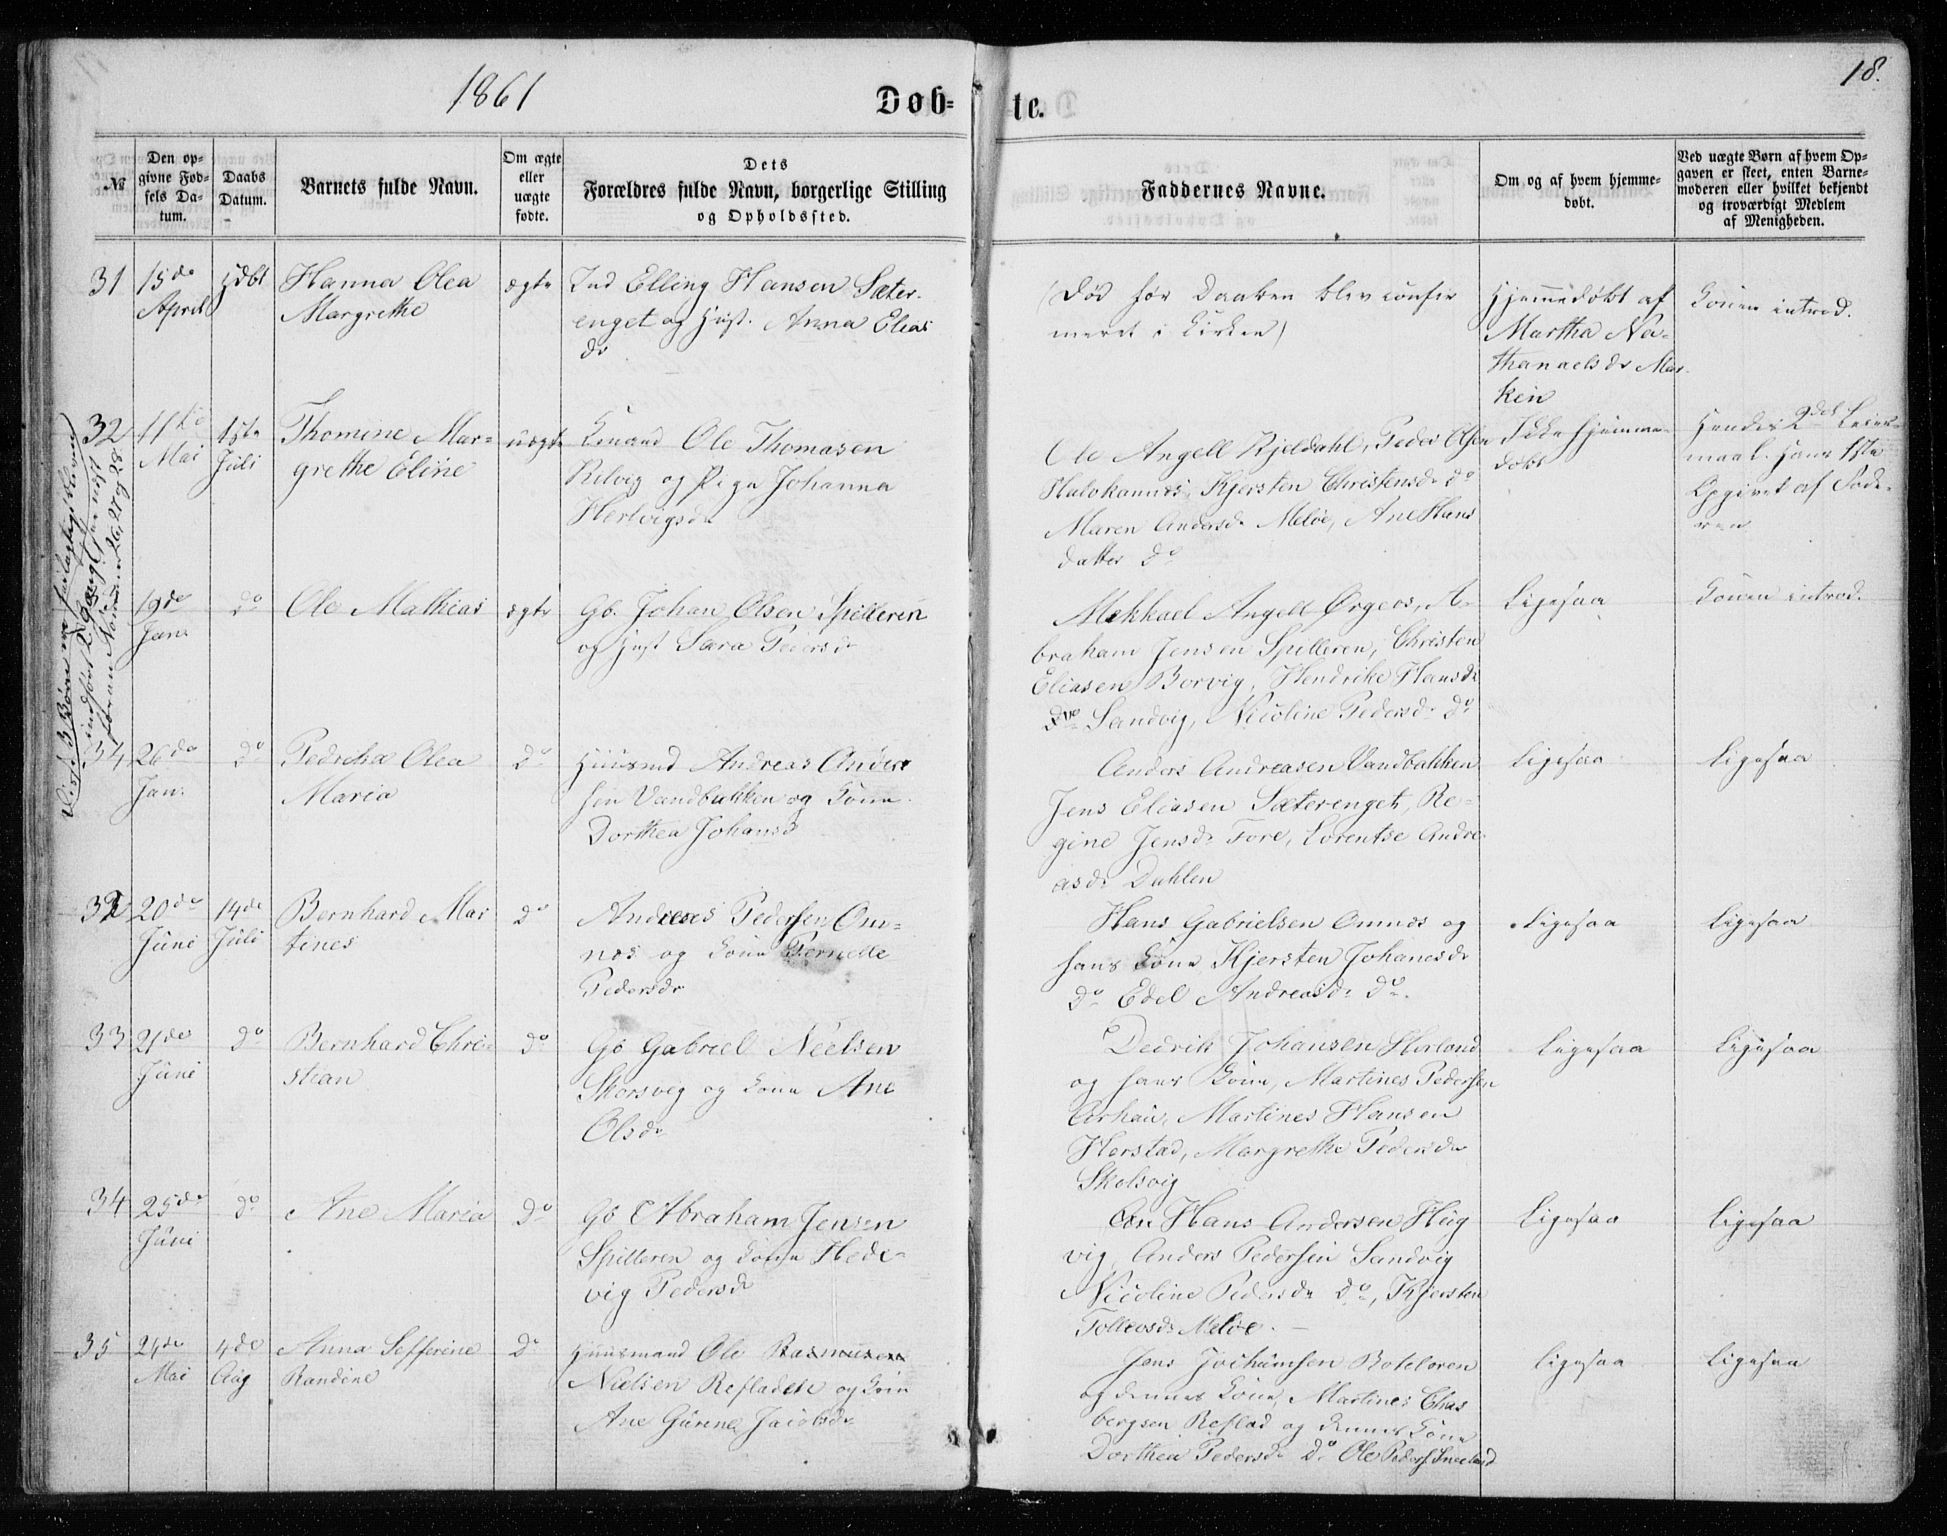 1861
Døb-
te.
18.
№
Den op-
givne Fød-
sels Da-
tum.
Daabs
Datum.
Barnets fulde Navn.
Om ægte
eller
uægte
fødte.
Dets
Forældres fulde Navn, borgerlige Stilling
og Opholdssted.
Faddernes Navne.
Om og af hvem hjemme-
døbt.
Ved uægte Børn af hvem Op-
gaven er skeet, enten Barne-
moderen eller hvilket bekjendt
og troværdigt Medlem
af Menigheden.
31 15de
April
Hjdbt
Hanna Olea
Margrethe
ægte
Ind Elling Hansen Sæter-
enget og Hust. Anna Elias
dr
(Død før Daaben blev confir
meret i Kirken)
Hjemmedøbt af
Martha Na-
thanaelsdr Mar-
ken
Konen introd.
32 11te
Mai
1ste
Juli
Thomine Mar-
grethe Eline
uægte
Ole Thomasen
og Pige Johanna
Hertvigsdr
Ole Angell Kjeldahl, Peder Olsen
Kjersten Christensdr do
Maren Andersdr Meløe, Ane Hans
datter do
Ikke hjemme-
døbt
Hendes 2det Leier-
maal. Hans 1ste
Opgivet af Fade-
ren
19de
Jan.
do
Ole Mathias
ægte
Gb. Johan Olsen Spilleren
og Hust Sara Pedersdr
Mikhael Angell Ørgeos, A-
braham Jensen Spilleren, Christen
Eliasen Borvig, Hendrike Hansdr
Sandvig, Nicoline Pedersdr do
Ligesaa
Konen introd.
34 26de
Jan:
do
Pedrikka Olea
Maria
do
Huusmd Andreas Ander
sen Vandbakken og Kone
Dorthea Johansdr
Anders Andreasen Vandbakken
Jens Eliasen Sæterenget, Re-
gine Jensdr Fore, Lorentse Andre-
asdr Dahlen
Ligesaa
Ligesaa
32 20de
Juni
14de
Juli
Bernhard Mar
tines
do
Andreas Pedersen Om-
næs og Kone Pernelle
Pedersdr
Hans Gabrielsen Omnæs og
hans Kone Kjersten Johanesdr
do Edel Andreasdr do.
Ligesaa
Ligesaa
33 21de
Juni
do
Bernhard Chri-
stian
do
Gb Gabriel Nielsen
Skorsvig og Kone Ane
Olsdr
Dedrik Johansen
og hans Kone, Martines Pedersen
Martines Hansen
Herstad, Margrethe Pedersdr
Skolsvig
Ligesaa
Ligesaa
34 25de
Juni
do
Ane Maria
do
Gb Abraham Jensen
Spilleren og Kone Hede-
vig Pedersdr
Hans Andersen Høg
vig, Anders Pedersen Sandvig
Nicoline Pedersdr do, Kjersten
Tolleosdr Meløe. —
Ligesaa
Ligesaa
35 24de
Mai
4de
Aug
Anna Sefferine
Randine
do
Huusmand Ole Rasmussen
Nielsen og Kone
Ane Gurine Jacobsdr
Jens Jochumsen
og dennes Kone, Martines
bergsen Reflad og dennes Kone
Dorthea Pedersdr do Ole Peders.
Ligesaa
Ligesaa